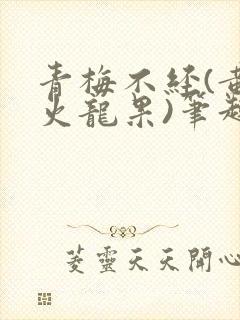 青梅不经(黄
火龍果)筆趣
菱靈天天開心